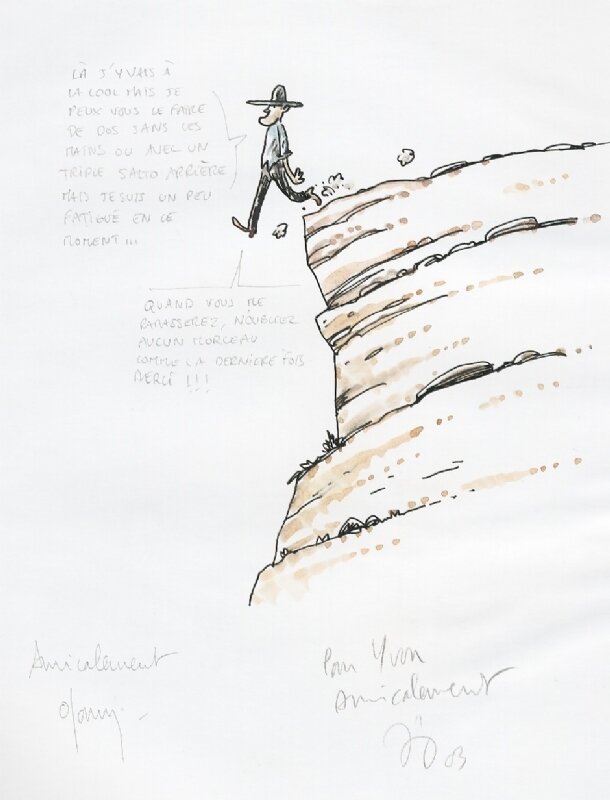 LÀ J'Y VAIS À
LA COOL MAIS JE
PEUX VOUS LE FAIRE
DE DOS SANS LES
MAINS OU AVEC UN
TRIPLE SALTO ARRIÈRE
MAIS JE SUIS UN PEU
FATIGUÉ EN CE
MOMENT...
QUAND VOUS ME
RAMASSEREZ, N'OUBLIEZ
AUCUN MORCEAU
COMME LA DERNIÈRE FOIS
MERCI !!!
Amicalement
Pour Yvon
Amicalement
03